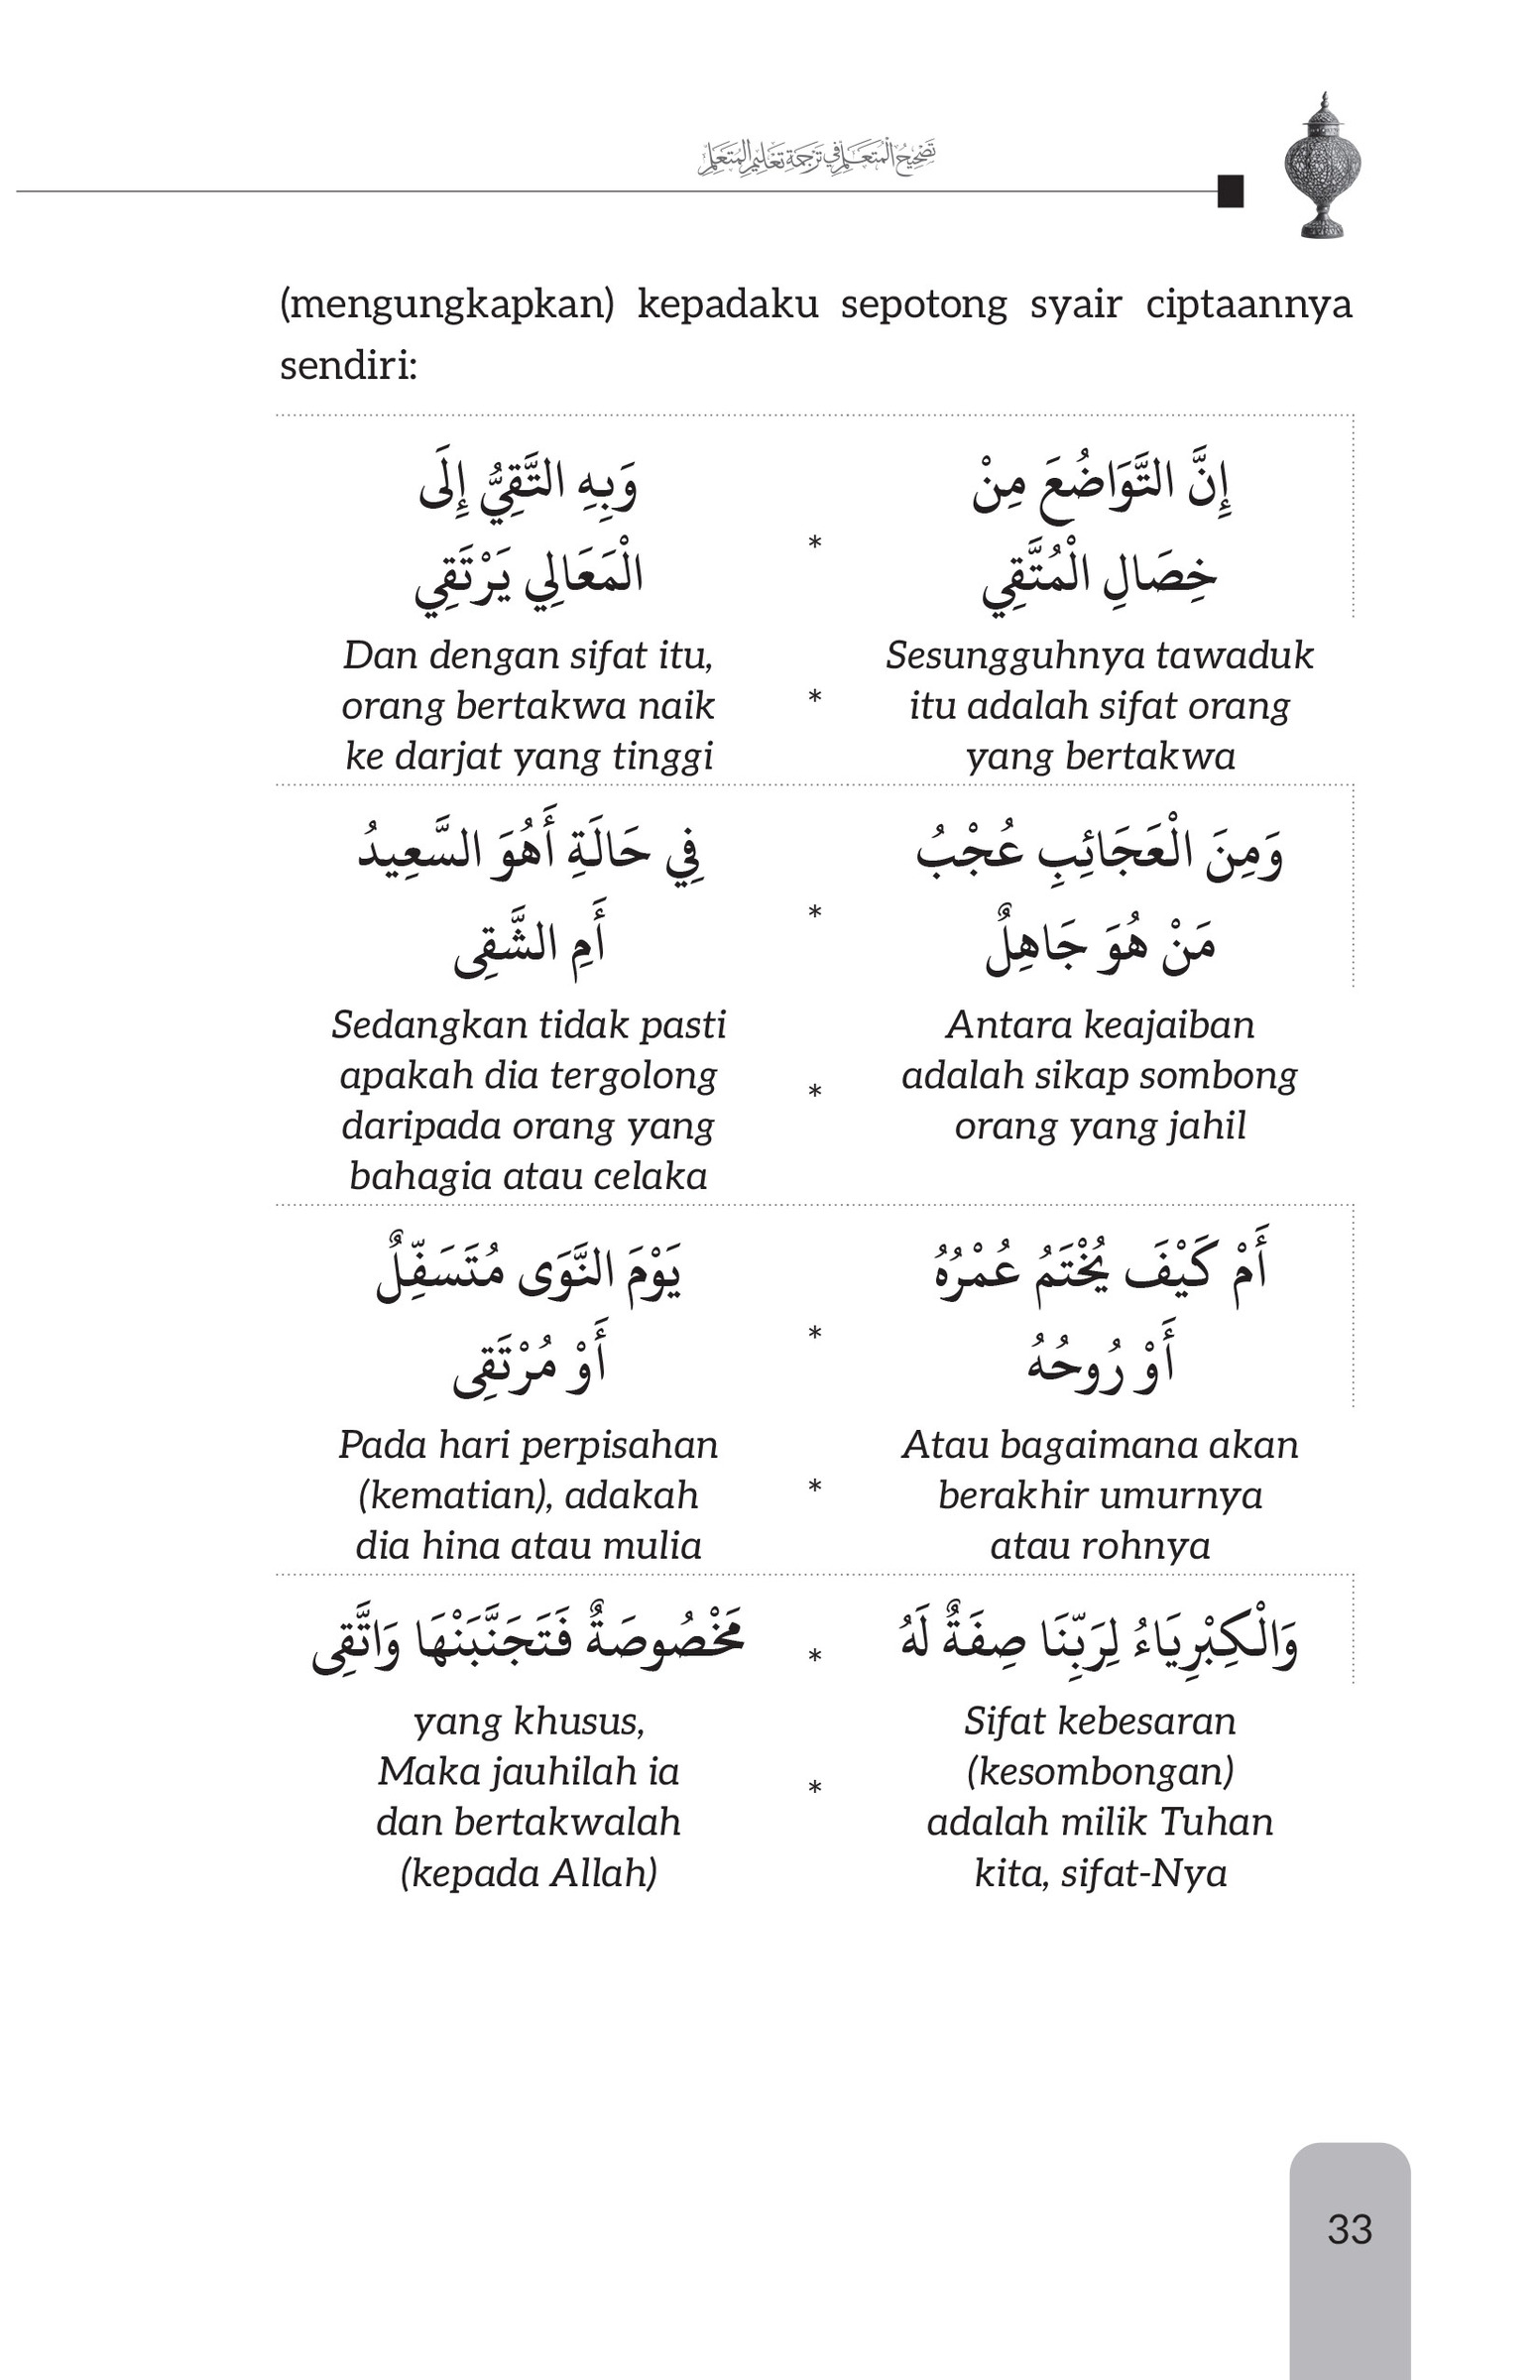 تَصْحِيحُ الْمُتَعَلِّمِ فِي تَرْجَمَةِ تَعْلِيمِ الْمُتَعَلِّمِ
(mengungkapkan) kepadaku sepotong syair ciptaannya
sendiri:
إِنَّ التَّوَاضُعَ مِنْ
خِصَالِ الْمُتَّقِي
*
وَبِهِ التَّقِيُّ إِلَى
الْمَعَالِي يَرْتَقِي
Sesungguhnya tawaduk
itu adalah sifat orang
yang bertakwa
*
Dan dengan sifat itu,
orang bertakwa naik
ke darjat yang tinggi
وَمِنَ الْعَجَائِبِ عُجْبُ
مَنْ هُوَ جَاهِلٌ
*
فِي حَالَةِ أَهُوَ السَّعِيدُ
أَمِ الشَّقِى
Antara keajaiban
adalah sikap sombong
orang yang jahil
*
Sedangkan tidak pasti
apakah dia tergolong
daripada orang yang
bahagia atau celaka
أَمْ كَيْفَ يُخْتَمُ عُمْرُهُ
أَوْ رُوحُهُ
*
يَوْمَ النَّوَى مُتَسَفِّلٌ
أَوْ مُرْتَقِى
Atau bagaimana akan
berakhir umurnya
atau rohnya
*
Pada hari perpisahan
(kematian), adakah
dia hina atau mulia
وَالْكِبْرِيَاءُ لِرَبِّنَا صِفَةٌ لَهُ
*
مَخْصُوصَةٌ فَتَجَنَّبَنْهَا وَاتَّقِى
Sifat kebesaran
(kesombongan)
adalah milik Tuhan
kita, sifat-Nya
*
yang khusus,
Maka jauhilah ia
dan bertakwalah
(kepada Allah)
33